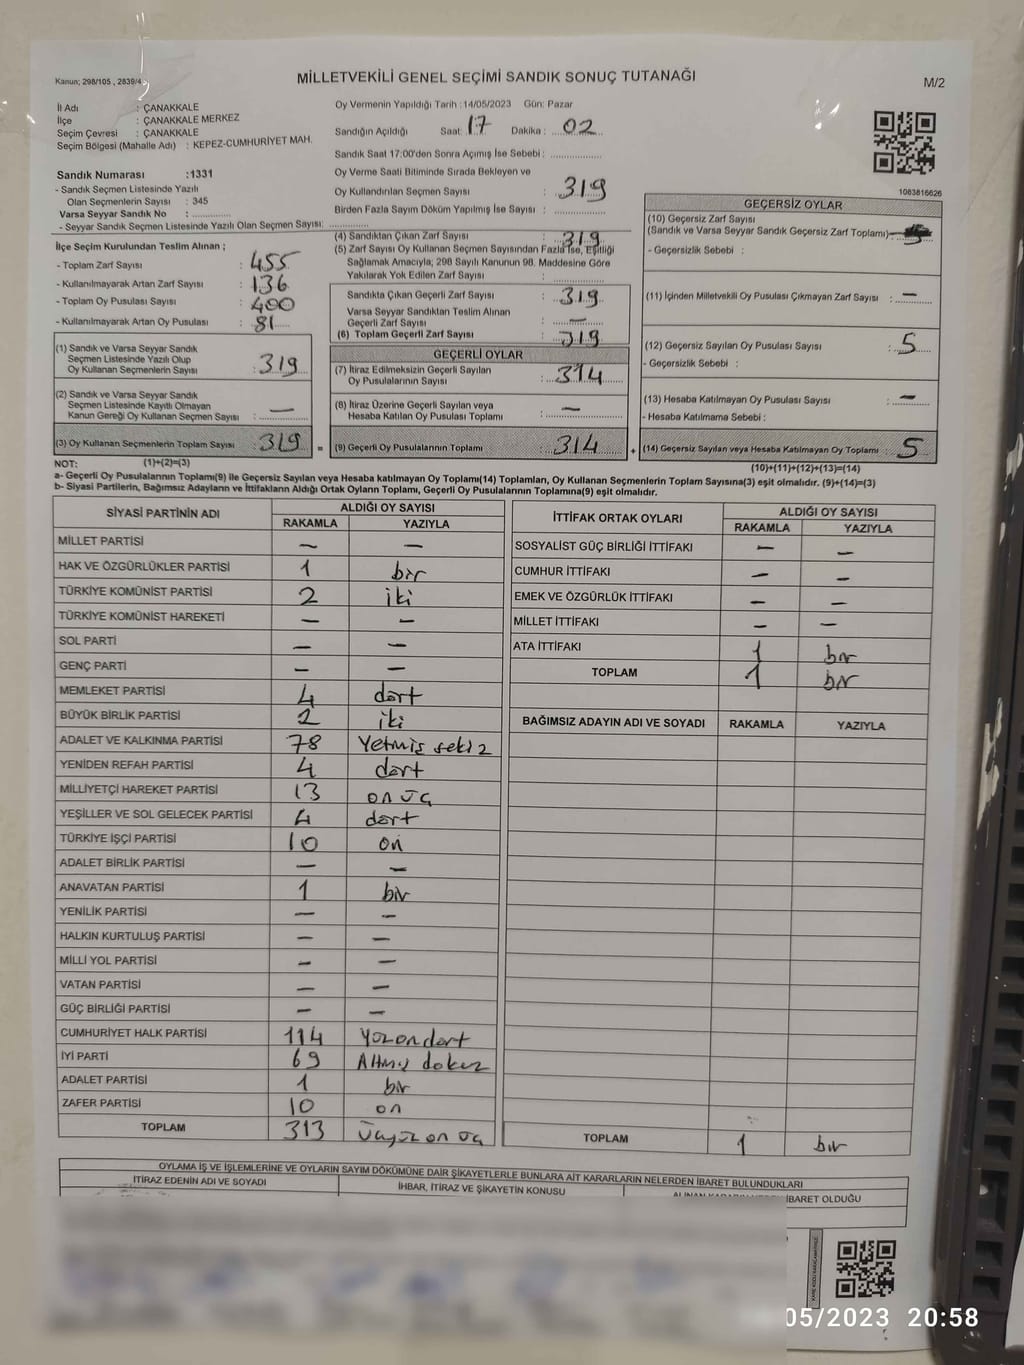 Kanun; 298/105 , 2839/4
MİLLETVEKİLİ GENEL SEÇİMİ SANDIK SONUÇ TUTANAĞI
M/2
İl Adı : ÇANAKKALE
İlçe : ÇANAKKALE MERKEZ
Seçim Çevresi : ÇANAKKALE
Seçim Bölgesi (Mahalle Adı) : KEPEZ-CUMHURİYET MAH.
Sandık Numarası :1331
- Sandık Seçmen Listesinde Yazılı
Olan Seçmenlerin Sayısı : 345
Varsa Seyyar Sandık No :
- Seyyar Sandık Seçmen Listesinde Yazılı Olan Seçmen Sayısı:
Oy Vermenin Yapıldığı Tarih :14/05/2023 Gün: Pazar
Sandığın Açıldığı Saat: 17 Dakika : 02
Sandık Saat 17:00'den Sonra Açımış İse Sebebi :
Oy Verme Saati Bitiminde Sırada Bekleyen ve
Oy Kullandırılan Seçmen Sayısı : 319
Birden Fazla Sayım Döküm Yapılmış İse Sayısı :
1063816626
İlçe Seçim Kurulundan Teslim Alınan ;
- Toplam Zarf Sayısı : 455
- Kullanılmayarak Artan Zarf Sayısı : 136
- Toplam Oy Pusulası Sayısı : 400
- Kullanılmayarak Artan Oy Pusulası : 81
(1) Sandık ve Varsa Seyyar Sandık
Seçmen Listesinde Yazılı Olup
Oy Kullanan Seçmenlerin Sayısı : 319
(2) Sandık ve Varsa Seyyar Sandık
Seçmen Listesinde Kayıtlı Olmayan
Kanun Gereği Oy Kullanan Seçmen Sayısı : —
(3) Oy Kullanan Seçmenlerin Toplam Sayısı : 319
(4) Sandıktan Çıkan Zarf Sayısı : 319
(5) Zarf Sayısı Oy Kullanan Seçmen Sayısından Fazla İse, Eşitliği
Sağlamak Amacıyla; 298 Sayılı Kanunun 98. Maddesine Göre
Yakılarak Yok Edilen Zarf Sayısı :
Sandıkta Çıkan Geçerli Zarf Sayısı : 319
Varsa Seyyar Sandıktan Teslim Alınan
Geçerli Zarf Sayısı : —
(6) Toplam Geçerli Zarf Sayısı : 319
GEÇERLİ OYLAR
(7) İtiraz Edilmeksizin Geçerli Sayılan
Oy Pusulalarının Sayısı : 314
(8) İtiraz Üzerine Geçerli Sayılan veya
Hesaba Katılan Oy Pusulası Toplamı : —
= (9) Geçerli Oy Pusulalarının Toplamı : 314
GEÇERSİZ OYLAR
(10) Geçersiz Zarf Sayısı
(Sandık ve Varsa Seyyar Sandık Geçersiz Zarf Toplamı) :
- Geçersizlik Sebebi :
(11) İçinden Milletvekili Oy Pusulası Çıkmayan Zarf Sayısı : —
(12) Geçersiz Sayılan Oy Pusulası Sayısı : 5
- Geçersizlik Sebebi :
(13) Hesaba Katılmayan Oy Pusulası Sayısı : —
- Hesaba Katılmama Sebebi :
+ (14) Geçersiz Sayılan veya Hesaba Katılmayan Oy Toplamı : 5
NOT: (1)+(2)=(3)
(10)+(11)+(12)+(13)=(14)
a- Geçerli Oy Pusulalarının Toplamı(9) ile Geçersiz Sayılan veya Hesaba katılmayan Oy Toplamı(14) Toplamları, Oy Kullanan Seçmenlerin Toplam Sayısına(3) eşit olmalıdır. (9)+(14)=(3)
b- Siyasi Partilerin, Bağımsız Adayların ve İttifakların Aldığı Ortak Oyların Toplamı, Geçerli Oy Pusulalarının Toplamına(9) eşit olmalıdır.
SİYASİ PARTİNİN ADI ALDIĞI OY SAYISI
RAKAMLA YAZIYLA
MİLLET PARTİSİ — —
HAK VE ÖZGÜRLÜKLER PARTİSİ 1 bir
TÜRKİYE KOMÜNİST PARTİSİ 2 iki
TÜRKİYE KOMÜNİST HAREKETİ — —
SOL PARTİ — —
GENÇ PARTİ — —
MEMLEKET PARTİSİ 4 dört
BÜYÜK BİRLİK PARTİSİ 2 iki
ADALET VE KALKINMA PARTİSİ 78 Yetmiş sekiz
YENİDEN REFAH PARTİSİ 4 dört
MİLLİYETÇİ HAREKET PARTİSİ 13 on üç
YEŞİLLER VE SOL GELECEK PARTİSİ 4 dört
TÜRKİYE İŞÇİ PARTİSİ 10 on
ADALET BİRLİK PARTİSİ — —
ANAVATAN PARTİSİ 1 bir
YENİLİK PARTİSİ — —
HALKIN KURTULUŞ PARTİSİ — —
MİLLİ YOL PARTİSİ — —
VATAN PARTİSİ — —
GÜÇ BİRLİĞİ PARTİSİ — —
CUMHURİYET HALK PARTİSİ 114 Yüzondört
İYİ PARTİ 69 Altmış dokuz
ADALET PARTİSİ 1 bir
ZAFER PARTİSİ 10 on
TOPLAM 313 Üçyüz on üç
İTTİFAK ORTAK OYLARI ALDIĞI OY SAYISI
RAKAMLA YAZIYLA
SOSYALİST GÜÇ BİRLİĞİ İTTİFAKI — —
CUMHUR İTTİFAKI — —
EMEK VE ÖZGÜRLÜK İTTİFAKI — —
MİLLET İTTİFAKI — —
ATA İTTİFAKI 1 bir
TOPLAM 1 bir
BAĞIMSIZ ADAYIN ADI VE SOYADI RAKAMLA YAZIYLA
TOPLAM 1 bir
OYLAMA İŞ VE İŞLEMLERİNE VE OYLARIN SAYIM DÖKÜMÜNE DAİR ŞİKAYETLERLE BUNLARA AİT KARARLARIN NELERDEN İBARET BULUNDUKLARI
İTİRAZ EDENİN ADI VE SOYADI İHBAR, İTİRAZ VE ŞİKAYETİN KONUSU ALINAN KARARIN İBARET OLDUĞU
05/2023 20:58